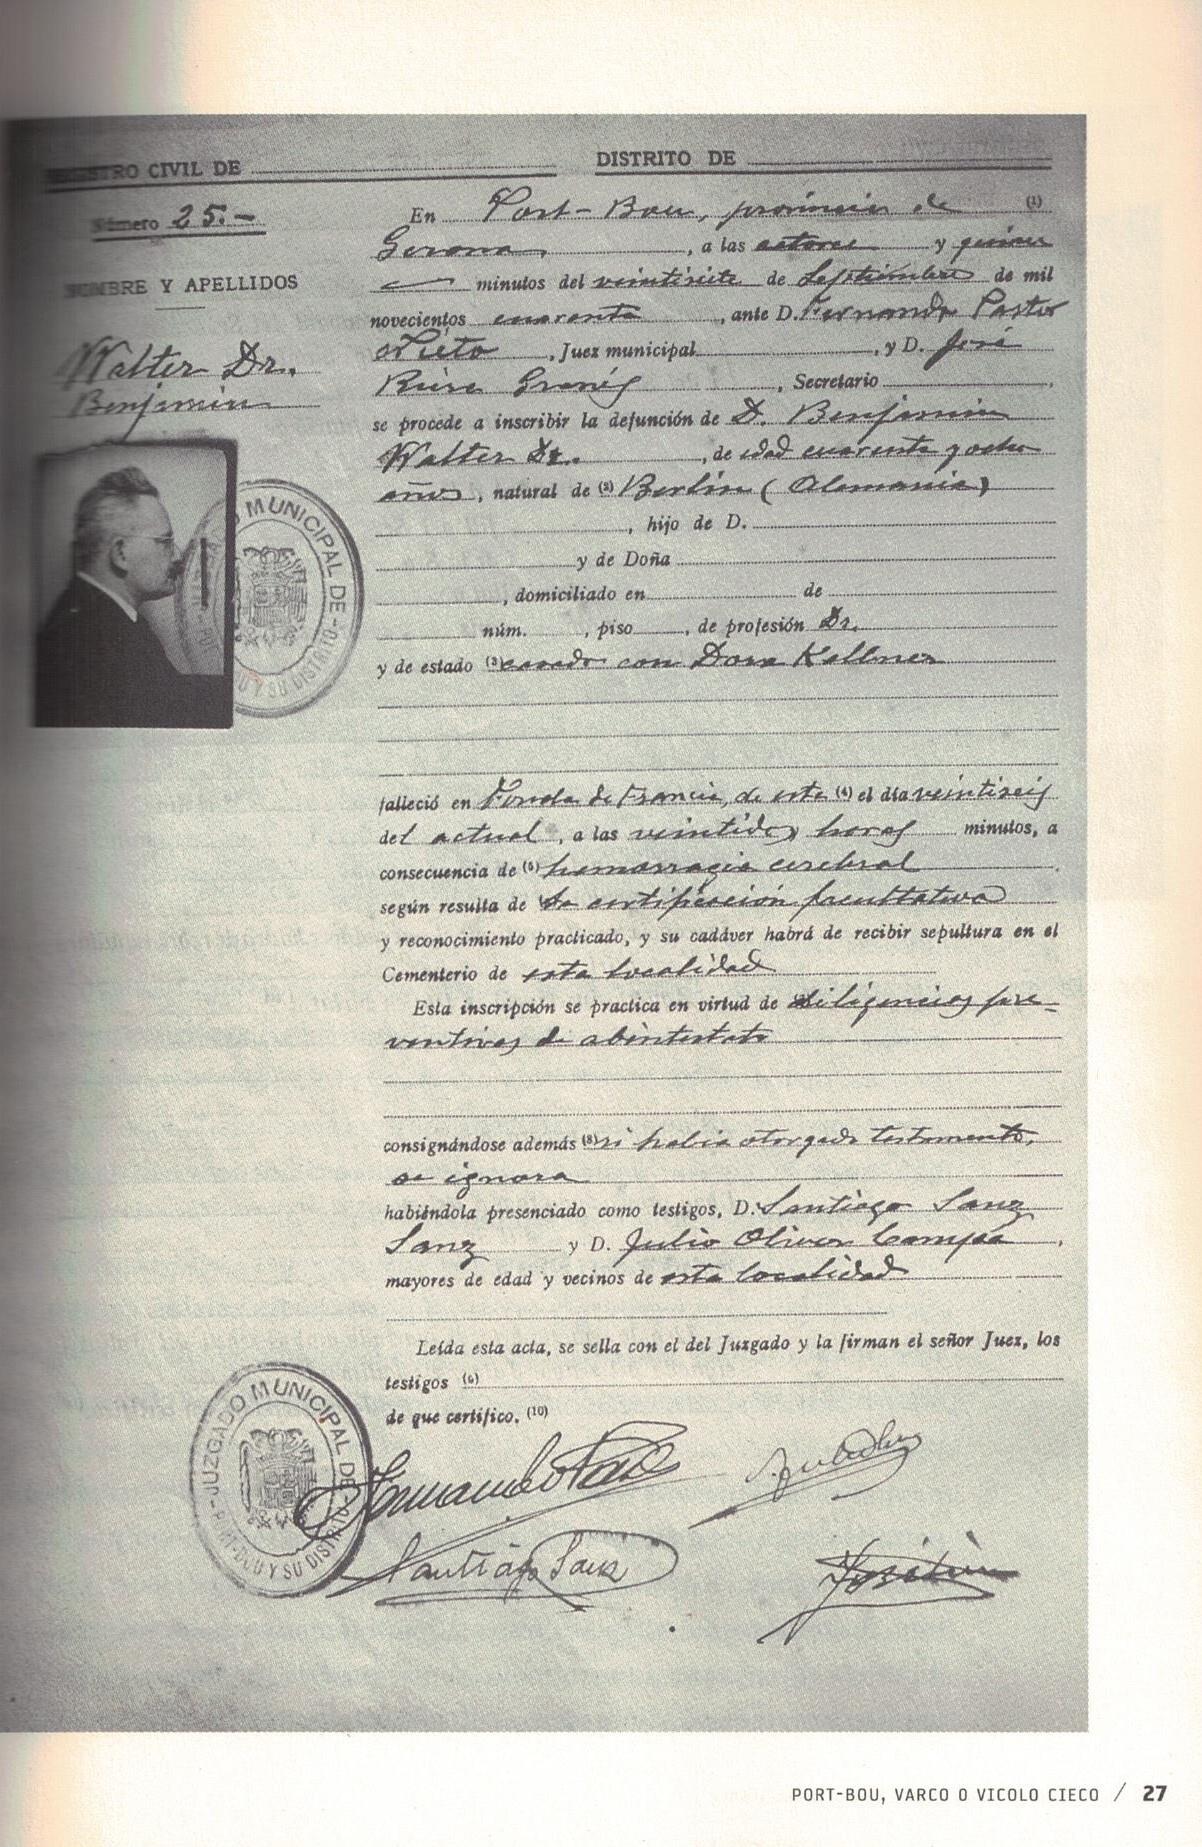 REGISTRO CIVIL DE
DISTRITO DE
Número 25.-
NOMBRE Y APELLIDOS
Walter Dr.
Benjamin
MUNICIPAL DE
Y SU DISTRITO
En Port-Bou, provincia de (1)
Gerona, a las catorce y quince
minutos del veintisiete de Septiembre de mil
novecientos cuarenta, ante D. Fernando Pastor
Nieto, Juez municipal, y D. José
Riera Granés, Secretario
se procede a inscribir la defunción de D. Benjamin
Walter Dr., de edad cuarenta y ocho
años, natural de (2) Berlin (Alemania)
, hijo de D.
y de Doña
, domiciliado en de
núm. , piso , de profesión Dr.
y de estado (3) casado con Dora Kellner
falleció en Fonda de Francia, de esta (4) el día veintiseis
del actual, a las veintidos horas minutos, a
consecuencia de (5) hemorragia cerebral
según resulta de la certificación facultativa
y reconocimiento practicado, y su cadáver habrá de recibir sepultura en el
Cementerio de esta localidad
Esta inscripción se practica en virtud de diligencias pre-
ventivas de abintestato
consignándose además (8) si habia otorgado testamento,
se ignora
habiéndola presenciado como testigos, D. Santiago Sanz
Sanz y D. Julio Oliver Campá,
mayores de edad y vecinos de esta localidad
Leída esta acta, se sella con el del Juzgado y la firman el señor Juez, los
testigos (6)
de que certifico. (10)
JUZGADO MUNICIPAL DE
PORT-BOU Y SU DISTRITO
Santiago Sanz
PORT-BOU, VARCO O VICOLO CIECO / 27